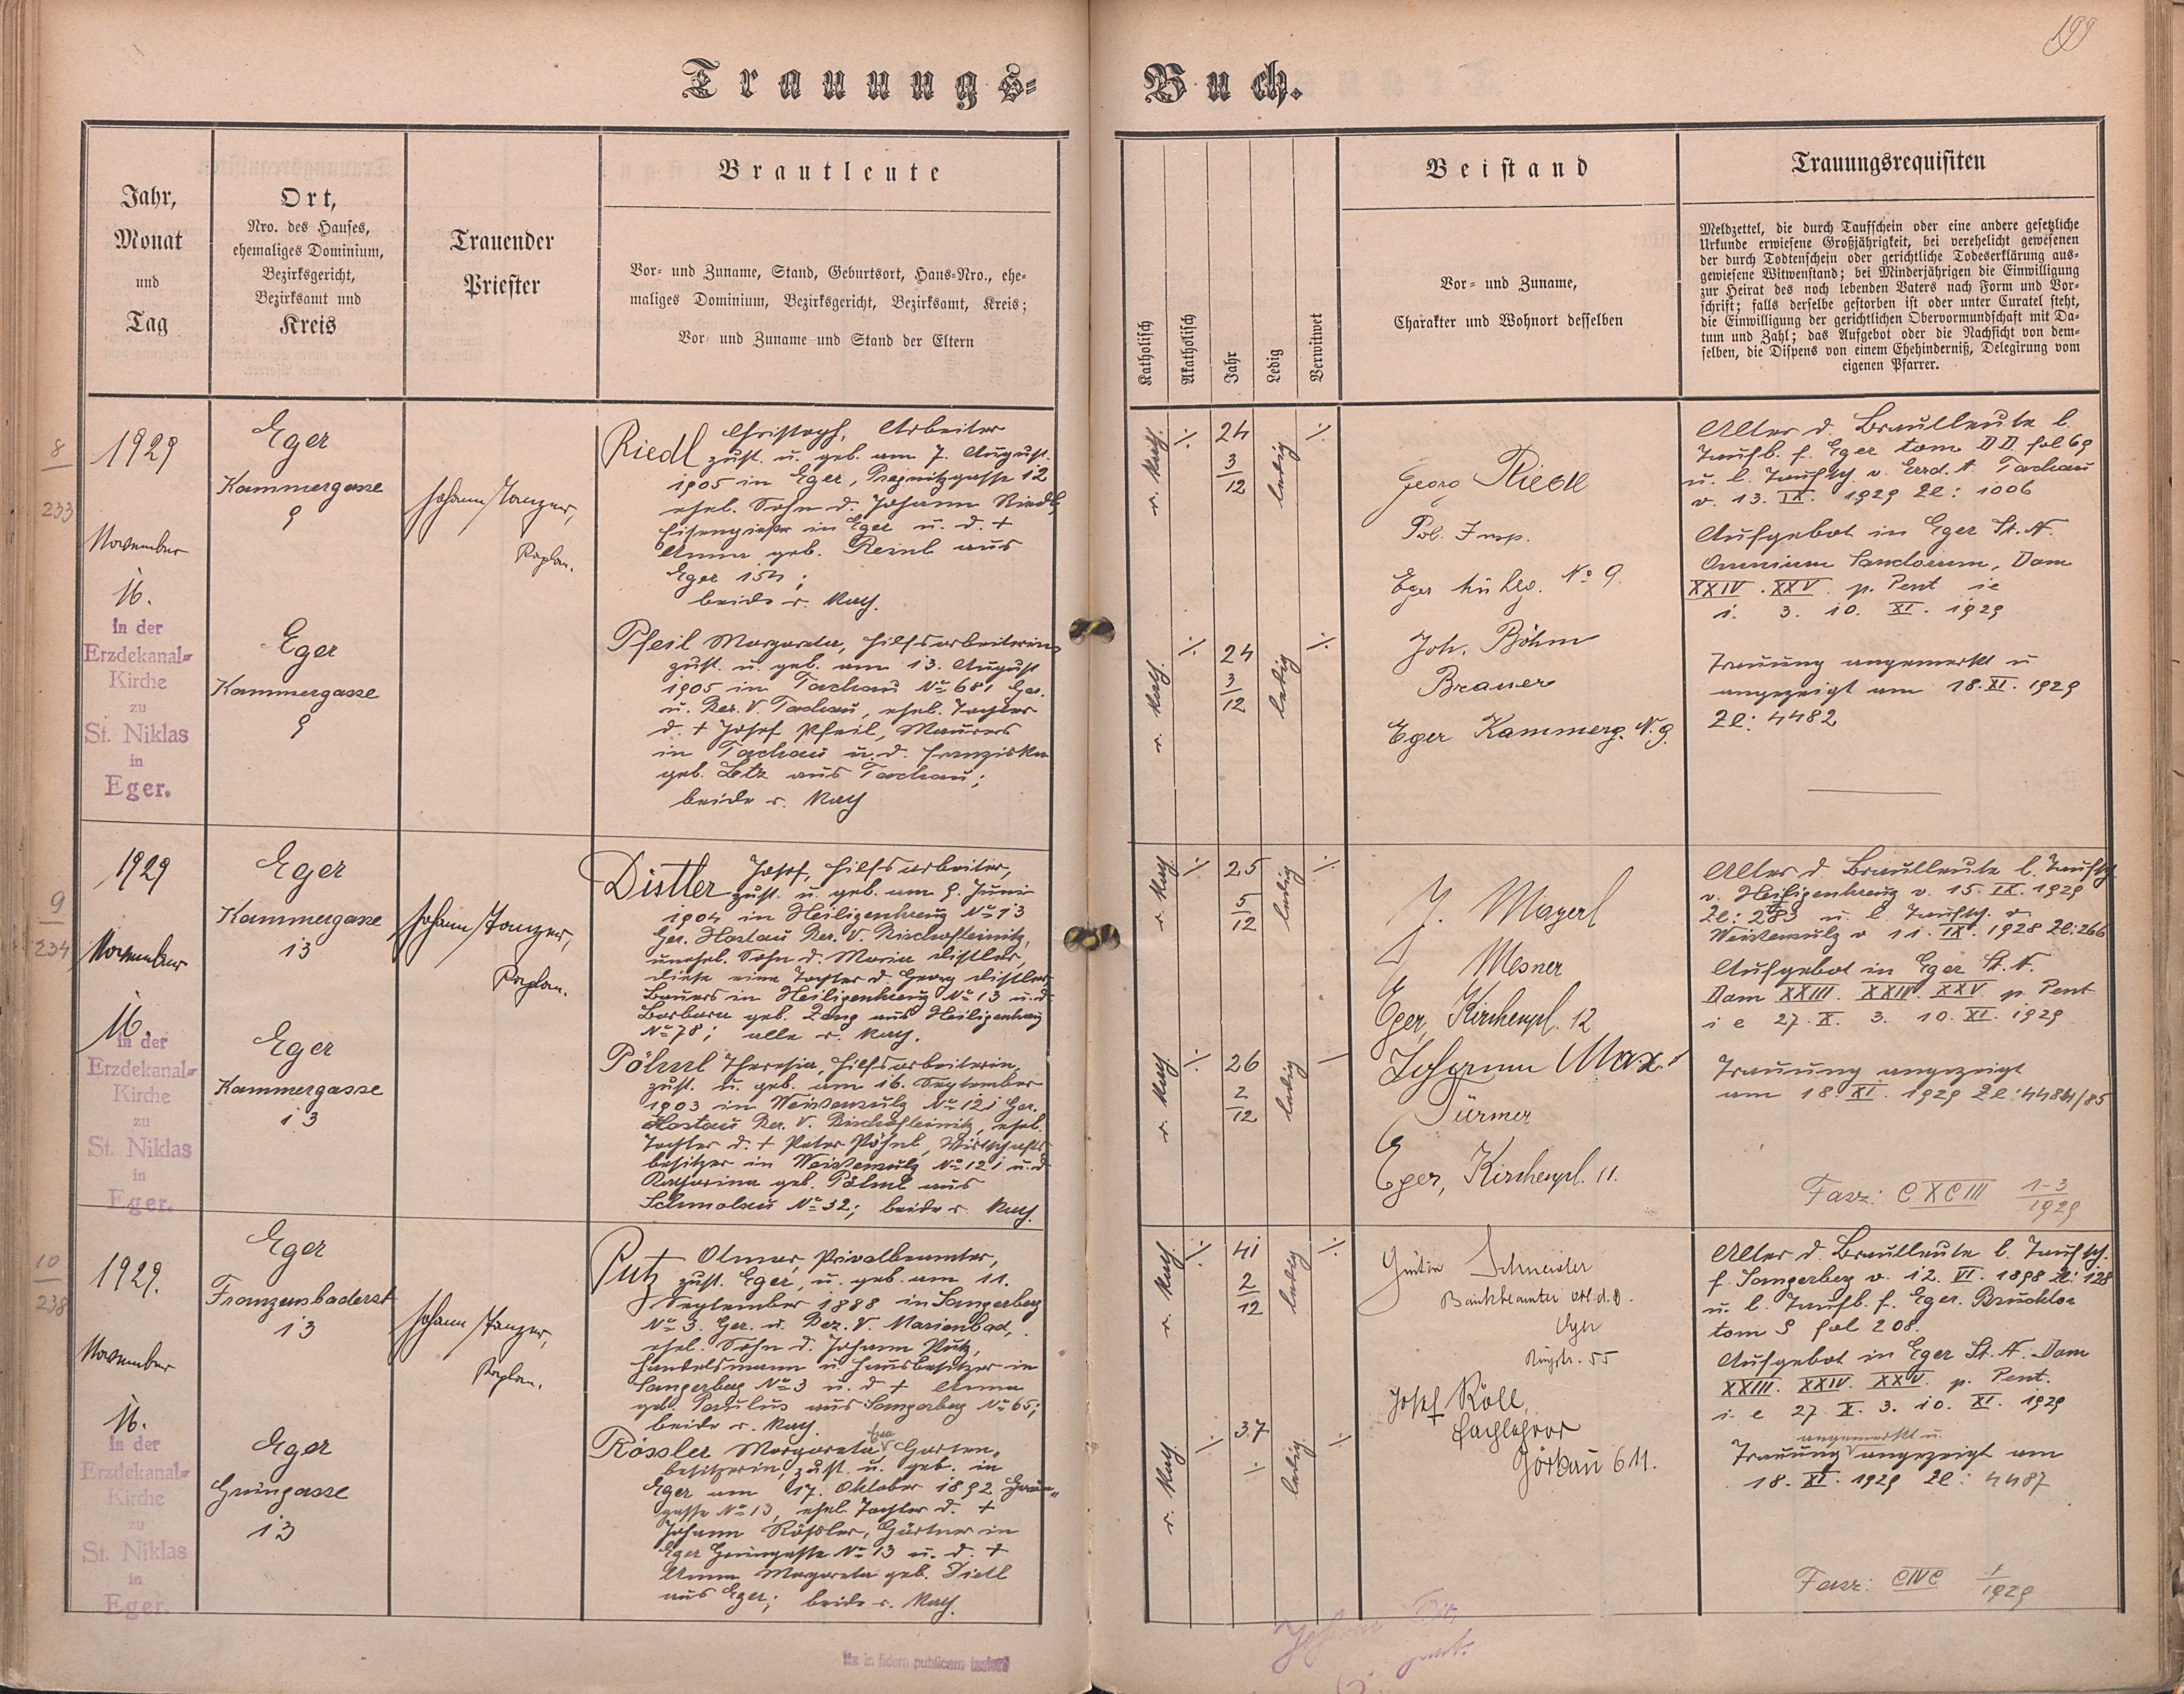 199
Trauungs=
Buch.
Jahr,
Monat
und
Tag
Ort,
Nro. des Hauses,
ehemaliges Dominium,
Bezirksgericht,
Bezirksamt und
Kreis
Trauender
Priester
Brautleute
Vor- und Zuname, Stand, Geburtsort, Haus-Nro., ehe-
maliges Dominium, Bezirksgericht, Bezirksamt, Kreis;
Vor- und Zuname und Stand der Eltern
Katholisch
Akatholisch
Jahr
Ledig
Verwitwet
Beistand
Vor- und Zuname,
Charakter und Wohnort desselben
Trauungsrequisiten
Meldzettel, die durch Taufschein oder eine andere gesetzliche
Urkunde erwiesene Großjährigkeit, bei verehelicht gewesenen
der durch Todtenschein oder gerichtliche Todeserklärung aus-
gewiesene Witwenstand; bei Minderjährigen die Einwilligung
zur Heirat des noch lebenden Vaters nach Form und Vor-
schrift; falls derselbe gestorben ist oder unter Curatel steht,
die Einwilligung der gerichtlichen Obervormundschaft mit Da-
tum und Zahl; das Aufgebot oder die Nachsicht von dem-
selben, die Dispens von einem Ehehinderniß, Delegirung vom
eigenen Pfarrer.
8
233
1929
November
16.
in der
Erzdekanal-
Kirche
zu
St. Niklas
in
Eger.
Eger
Kammergasse
9
Eger
Kammergasse
9
Johann Tanzer,
Kaplan.
Riedl Christoph, Arbeiter
zust. u. geb. am 7. August
1905 in Eger, Pregnitzgasse 12
ehel. Sohn d. Johann Riedl,
Eisengießer in Eger u. d. +
Anna geb. Reinl aus
Eger 154;
beide r. kath.
Pfeil Margareta, Hilfsarbeiterin,
zust. u. geb. am 13. August
1905 in Tachau No 681 Ger.
u. Bez. V. Tachau, ehel. Tochter
d. + Josef Pfeil, Maurers
in Tachau u. d. Franziska
geb. Letz aus Tachau;
beide r. kath
r. kath.
24
3
12
ledig
r. kath.
24
3
12
ledig
Georg Riedl
Pol. Insp.
Eger No 9.
Joh. Böhm
Brauer
Eger Kammerg. N. 9.
Alter d. Brautleute l.
Taufb. f. Eger tom DD fol 69
u. l. Taufsch. v. Erzd. A. Tachau
v. 13. IX. 1929 Zl: 1006
Aufgebot in Eger St. N.
Omnium Sanctorum, Dom
XXIV. XXV. p. Pent ie
1. 3. 10. XI. 1929
Trauung angemerkt u
angezeigt am 18. XI. 1929
Zl: 4482
9
234
1929
November
16.
in der
Erzdekanal-
Kirche
zu
St. Niklas
in
Eger.
Eger
Kammergasse
13
Eger
Kammergasse
13
Johann Tanzer,
Kaplan.
Distler Josef, Hilfsarbeiter,
zust. u. geb. am 9. Juni
1904 in Heiligenkreuz No 13
Ger. Hostau Bez. V. Bischofteinitz,
unehel. Sohn d. Maria Distler,
diese eine Tochter d. Georg Distler,
Bauers in Heiligenkreuz No 13 u. d.
Barbara geb. Zang aus Heiligenkreuz
No 78; alle r. kath.
Pöhnl Theresia, Hilfsarbeiterin,
zust. u. geb. am 16. September
1903 in Weißensulz No 121 Ger.
Hostau Bez. V. Bischofteinitz, ehel.
Tochter d. + Peter Pöhnl, Wirtschafts-
besitzer in Weißensulz No 121 u. d.
Katharina geb. Pöhnl aus
Schmolau No 32; beide r. kath.
r. kath.
25
5
12
ledig
r. kath.
26
2
12
ledig
J. Mayerl
Mesner
Eger, Kirchenpl. 12
Johann Max
Türmer
Eger, Kirchenpl. 11.
Alter d. Brautleute l. Taufsch.
v. Heiligenkreuz v. 15. IX. 1929
Zl: 283 u. l. Taufsch. v
Weißensulz v 11. IX. 1928 Zl: 266
Aufgebot in Eger St. N.
Dom XXIII. XXIV. XXV p Pent
i e 27. X. 3. 10. XI. 1929
Trauung angezeigt
am 18. XI. 1929 Zl: 4484/85
Fasz: CXCIII 1-3
1929
10
238
1929.
November
16.
in der
Erzdekanal-
Kirche
zu
St. Niklas
in
Eger.
Eger
Franzensbaderst
13
Eger
Grüngasse
13
Johann Tanzer,
Kaplan.
Putz Otmar, Privatbeamter,
zust. Eger, u. geb. am 11.
September 1888 in Sangerberg
No 3. Ger. u. Bez. V. Marienbad,
ehel. Sohn d. Johann Putz,
Handelsmann u Hausbesitzer in
Sangerberg No 3 u. d + Anna
geb. Paulus aus Sangerberg No 65;
beide r. kath.
Rössler Margareta Eva Garten-
besitzerin, zust. u. geb. in
Eger am 17. Oktober 1892 Grün-
gasse No 13, ehel. Tochter d. +
Johann Rößler, Gärtner in
Eger Grüngasse No 13 u. d. +
Anna Margareta geb. Dietl
aus Eger; beide r. kath.
r. kath.
41
2
12
ledig
r. kath.
37
ledig
Schneider
Bankbeamter
Eger
Ringstr. 55
Josef Köll,
Fachlehrer
Görkau 611.
Alter d. Brautleute l. Taufsch.
f. Sangerberg v. 12. VI. 1898 Zl: 128
u. l. Taufb. f. Eger. Brucktor
tom S fol 208.
Aufgebot in Eger St. N. Dom
XXIII. XXIV. XXV. p. Pent.
i. e 27. X. 3. 10. XI. 1929
angemerkt u.
Trauung angezeigt am
18. XI. 1929 Zl: 4487
Fasz: CIVC 1
1929
Ita in fidem publicam testor